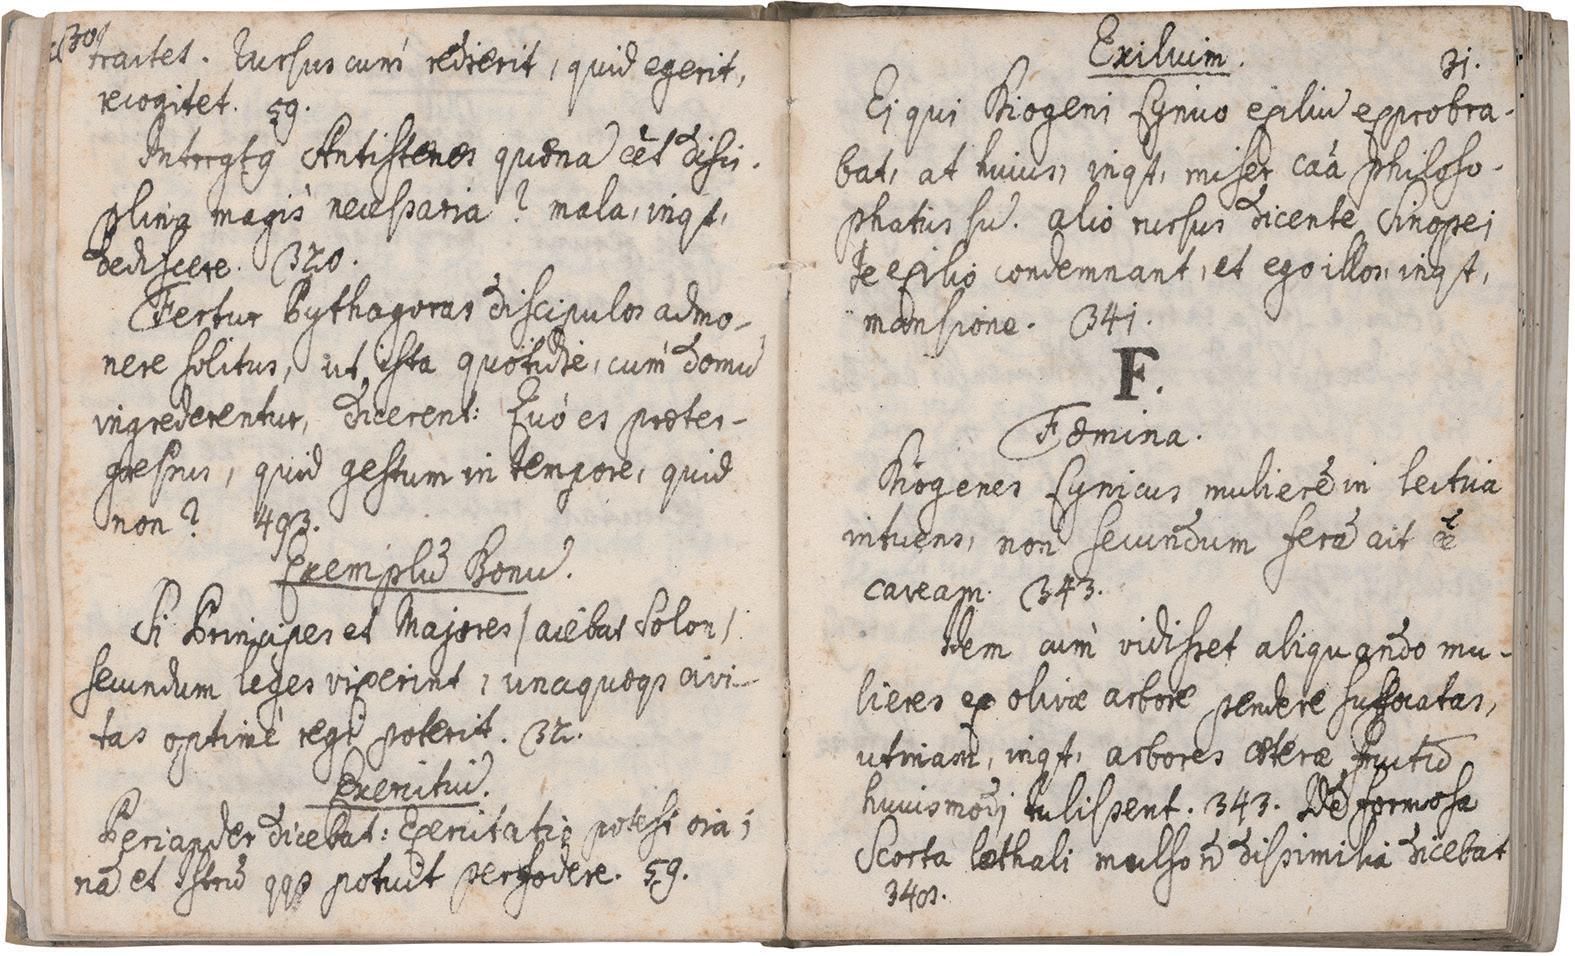 30
tractet. Rursus cum rediérit, quid egerit,
recogitet. 59.
Antisthenes quænā eēt disci-
plina magis necessaria? mala, inqt,
dediscere. 320.
Fertur Pythagoras discipulos admo-
nere solitus, ut ista quotidie, cum domū
ingrederentur, dicerent: Quò es præter-
gressus, quid gestum in tempore, quid
non? 493.
Exemplū Bonū.
Si Principes et Majores / aiebat Solon /
secundum leges vixerint, unaquæqꝫ civi-
tas optimè regi poterit. 32.
Exercitiū.
Periander dicebat: Exercitatio potest oia;
nā et Istrū potuit perfodere. 59.
Exilium.
31.
Ei qui Diogeni Cynico exiliū exprobra-
bat, at huius, inqt, miser caā philoso-
phatus sū. alio rursus dicente Sinopei
te exilio condemnant, et ego illos, inqt,
mansione. 341.
F.
Fœmina.
Diogenes Cynicus mulierē in lectica
intuens, non secundum ferā ait
caveam. 343.
Idem cùm vidisset aliquando mu-
lieres ex olivæ arbore pendere suffocatas,
utinam, inqt, arbores cæteræ fructū
huiusmodi tulissent. 343. Dē formosa
Scorta lethali mulso dissimilia dicebat